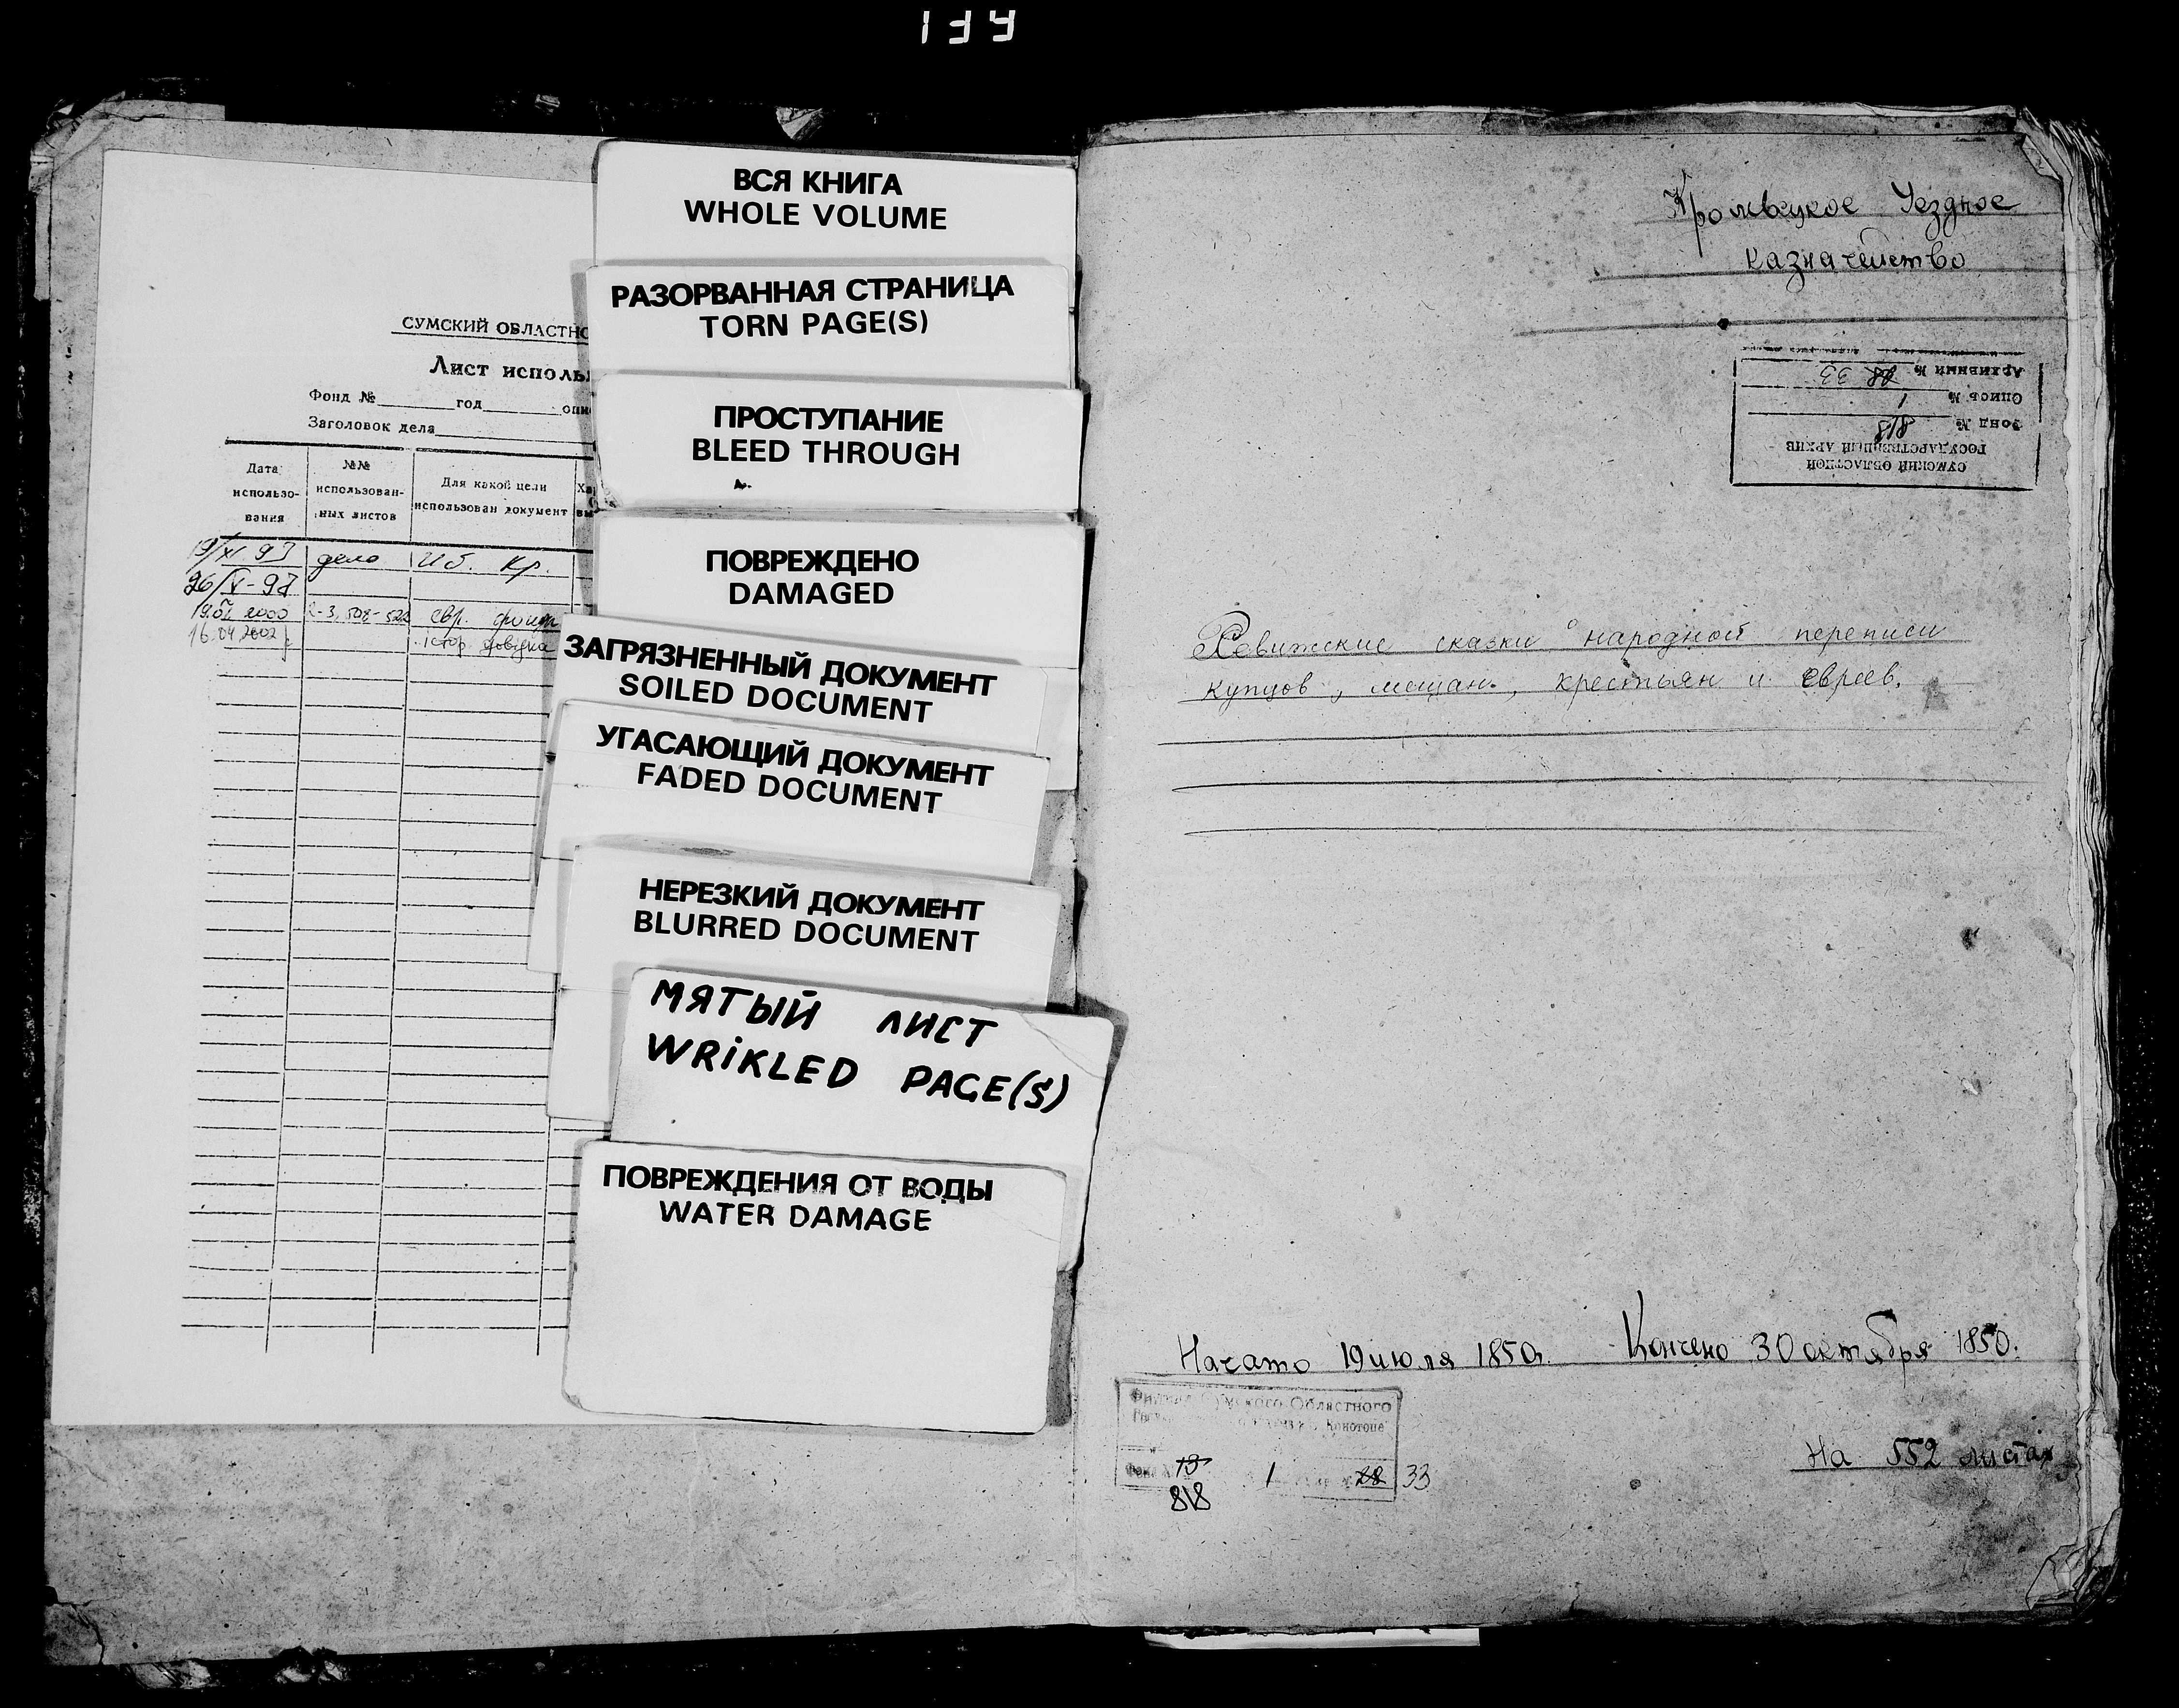 ВСЯ КНИГА
WHOLE VOLUME
РАЗОРВАННАЯ СТРАНИЦА
TORN PAGE(S)
ПРОСТУПАНИЕ
BLEED THROUGH
ПОВРЕЖДЕНО
DAMAGED
ЗАГРЯЗНЕННЫЙ ДОКУМЕНТ
SOILED DOCUMENT
УГАСАЮЩИЙ ДОКУМЕНТ
FADED DOCUMENT
НЕРЕЗКИЙ ДОКУМЕНТ
BLURRED DOCUMENT
МЯТЫЙ ЛИСТ
WRIKLED PAGE(S)
ПОВРЕЖДЕНИЯ ОТ ВОДЫ
WATER DAMAGE
СУМСКИЙ ОБЛАСТНО
Лист исполь
Фонд № год опи
Заголовок дела
Дата использо-вания
№№ использован-ных листов
Для какой цели использован документ
19/XI 93 дело Иб. Кр.
26/V-97
2000 508-522 евр.
16.04 2002 істор. довідка
Кролвецкое Уездное
казначейство
СУМСКИЙ ОБЛАСТНОЙ
ГОСУДАРСТВЕННЫЙ АРХИВ
Фонд № 818
Опись № 1
Архивный № 28 33
Ревижские сказки народной переписи
купцов, мещан, крестьян и евреев.
Начато 19 июля 1850г. Кончено 30 октября 1850.
Сумского Областного
Конотопе
13 1 28 33
818
На 552 листах